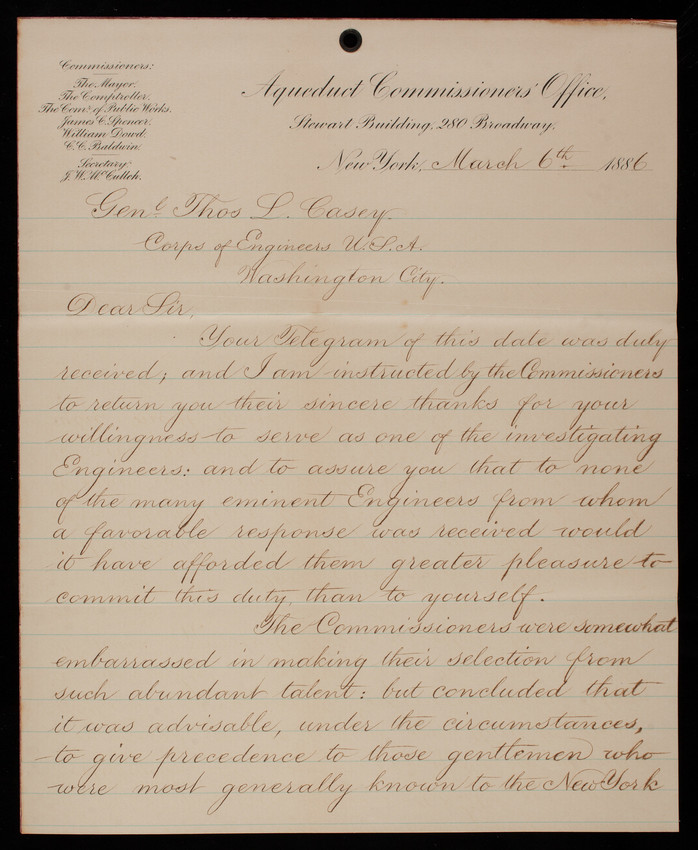 Commissioners:
The Mayor.
The Comptroller.
The Comr. of Public Works.
James C. Spencer.
William Dowd.
C. C. Baldwin.
Secretary:
J. W. McCulloh.
Aqueduct Commissioners' Office,
Stewart Building, 280 Broadway,
New York, March 6th 1886
Genl. Thos L. Casey.
Corps of Engineers U.S.A.
Washington City.
Dear Sir,
Your Telegram of this date was duly
received; and I am instructed by the Commissioners
to return you their sincere thanks for your
willingness to serve as one of the investigating
Engineers: and to assure you that to none
of the many eminent Engineers from whom
a favorable response was received would
it have afforded them greater pleasure to
commit this duty, than to yourself.
The Commissioners were somewhat
embarrassed in making their selection from
such abundant talent: but concluded that
it was advisable, under the circumstances,
to give precedence to those gentlemen who
were most generally known to the New York